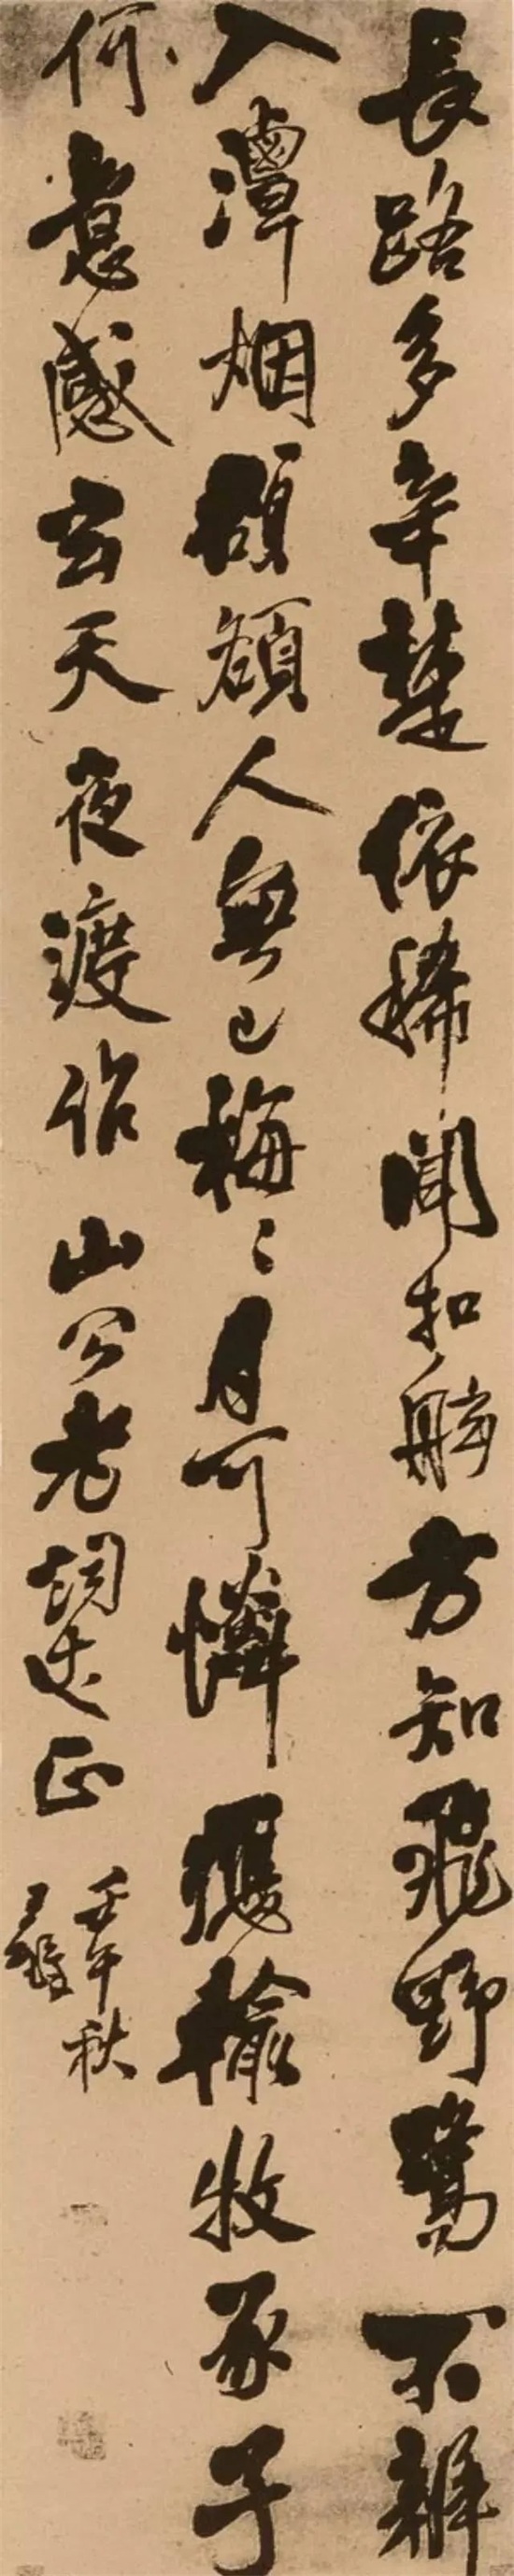 長路多辛楚依稀聞扣舷方知飛野鷺不辨
入潭烟頎頎人無已稱〻月可憐獲輸牧豕子
何意感玄天夜渡作山公老詞丈正
壬午秋
王鐸